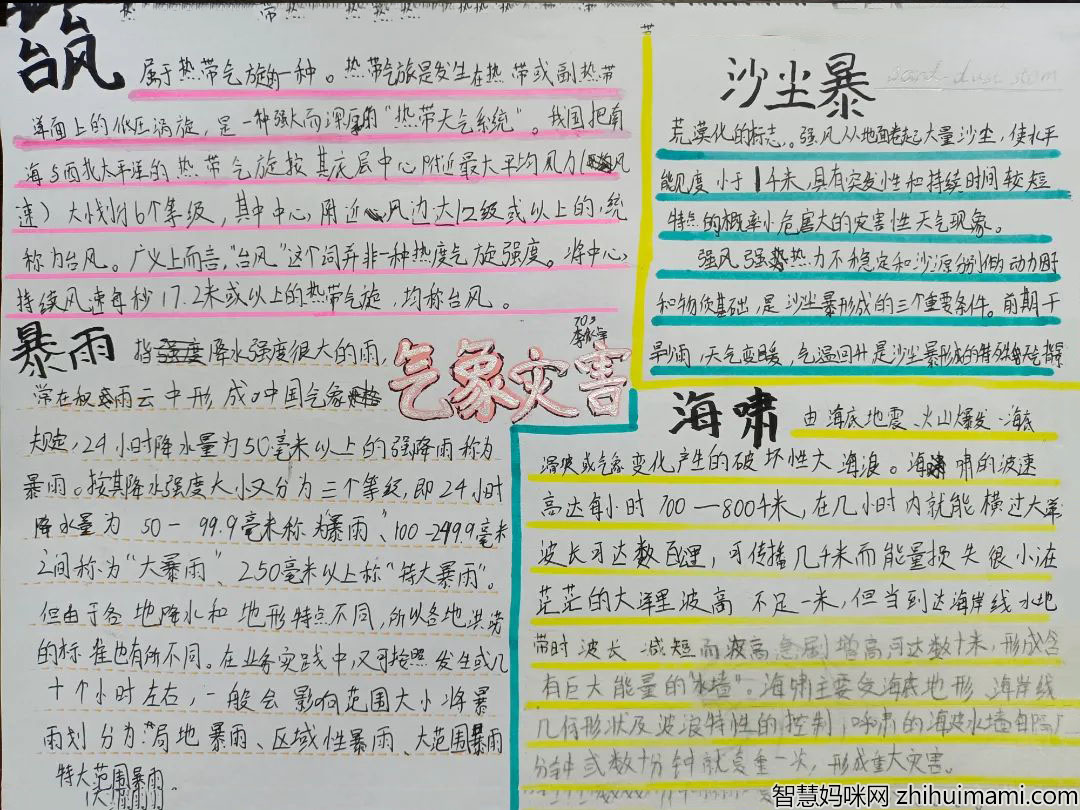 台风
属于热带气旋的一种。热带气旋是发生在热带或副热带
洋面上的低压涡旋，是一种强大而深厚的"热带天气系统"。我国把南
海与西北太平洋的热带气旋按其底层中心附近最大平均风力（风
速）大小划分6个等级，其中中心附近风力达12级或以上的，统
称为台风。广义上而言，"台风"这个词并非一种热带气旋强度。将中心
持续风速每秒17.2米或以上的热带气旋，均称台风。
暴雨
指降水强度很大的雨，
常在积雨云中形成。中国气象
规定，24小时降水量为50毫米以上的强降雨称为
暴雨。按其降水强度大小又分为三个等级，即24小时
降水量为50－99.9毫米称为"暴雨"、100-249.9毫米
之间称为"大暴雨"、250毫米以上称"特大暴雨"。
但由于各地降水和地形特点不同，所以各地洪涝
的标准也有所不同。在业务实践中，又可按照发生或几
十个小时左右，一般会影响范围大小将暴
雨划分为"局地暴雨、区域性暴雨、大范围暴雨
特大范围暴雨。
703
气象灾害
沙尘暴
sand-dust storm
荒漠化的标志。强风从地面卷起大量沙尘，使水平
能见度小于1千米，具有突发性和持续时间较短
特点的概率小危害大的灾害性天气现象。
强风强热力不稳定和沙源分别做动力
和物质基础，是沙尘暴形成的三个重要条件。前期干
旱少雨，天气变暖，气温回升是沙尘暴形成的特殊
海啸
由海底地震、火山爆发、海底
滑坡或气象变化产生的破坏性大海浪。海啸的波速
高达每小时700—800千米，在几小时内就能横过大洋
波长可达数百公里，可传播几千米而能量损失很小在
茫茫的大洋里波高不足一米，但当到达海岸线水地
带时波长减短而波高急剧增高可达数十米，形成含
有巨大能量的"水墙"。海啸主要受海底地形、海岸线
几何形状及波浪特性的控制，呼啸的海浪水墙每隔
分钟或数十分钟就复重一次，形成重大灾害。
智慧妈咪网 zhihuimami.com